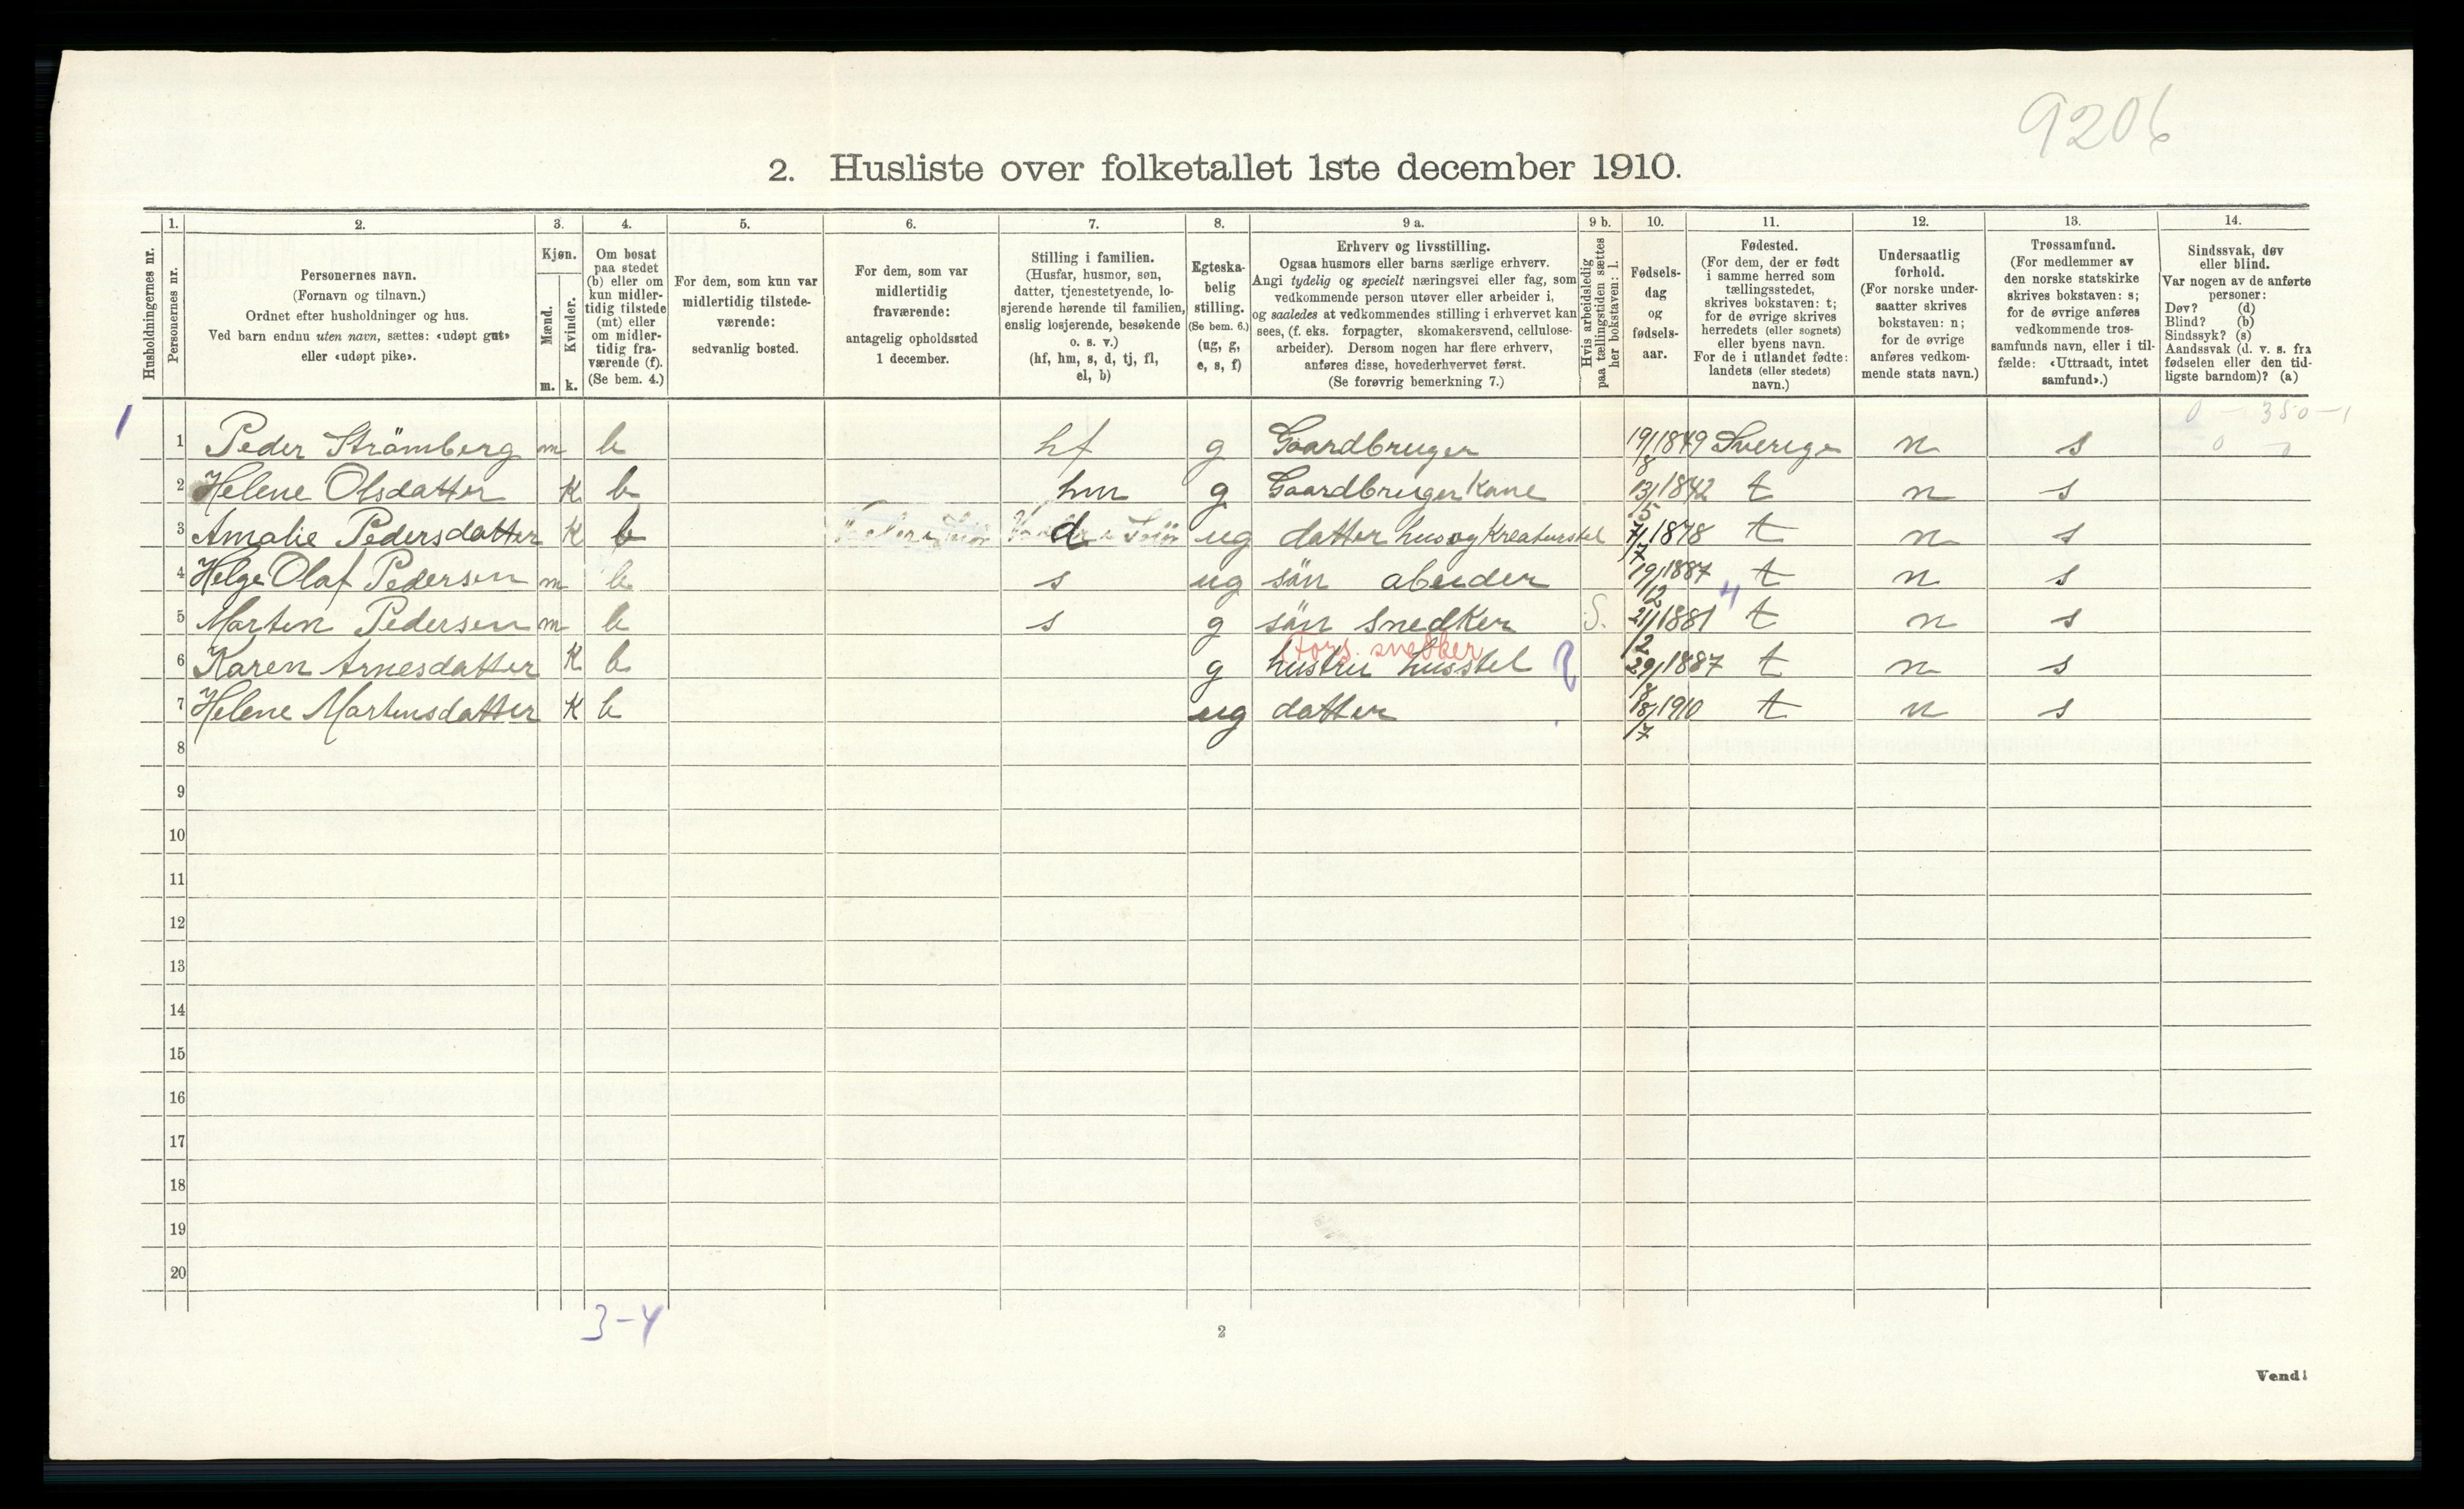 9206
2. Husliste over folketallet 1ste december 1910.
Husholdningernes nr.
1.
Personernes nr.
2.
Personernes navn.
(Fornavn og tilnavn.)
Ordnet efter husholdninger og hus.
Ved barn endnu uten navn, sættes: «udøpt gut»
eller «udøpt pike».
3.
Kjøn.
Mænd.
Kvinder.
m. k.
4.
Om bosat
paa stedet
(b) eller om
kun midler-
tidig tilstede
(mt) eller
om midler-
tidig fra-
værende (f).
(Se bem. 4.)
5.
For dem, som kun var
midlertidig tilstede-
værende:
sedvanlig bosted.
6.
For dem, som var
midlertidig
fraværende:
antagelig opholdssted
1 december.
7.
Stilling i familien.
(Husfar, husmor, søn,
datter, tjenestetyende, lo-
sjerende hørende til familien,
enslig losjerende, besøkende
o. s. v.)
(hf, hm, s, d, tj, fl,
el, b)
8.
Egteska-
belig
stilling.
(Se bem. 6.)
(ug, g,
e, s, f)
9 a.
Erhverv og livsstilling.
Ogsaa husmors eller barns særlige erhverv.
Angi tydelig og specielt næringsvei eller fag, som
vedkommende person utøver eller arbeider i,
og saaledes at vedkommendes stilling i erhvervet kan
sees, (f. eks. forpagter, skomakersvend, cellulose-
arbeider). Dersom nogen har flere erhverv,
anføres disse, hovederhvervet først.
(Se forøvrig bemerkning 7.)
9 b.
Hvis arbeidsledig
paa tællingstiden sættes
her bokstaven: l.
10.
Fødsels-
dag
og
fødsels-
aar.
11.
Fødested.
(For dem, der er født
i samme herred som
tællingsstedet,
skrives bokstaven: t;
for de øvrige skrives
herredets (eller sognets)
eller byens navn.
For de i utlandet fødte:
landets (eller stedets)
navn.)
12.
Undersaatlig
forhold.
(For norske under-
saatter skrives
bokstaven: n;
for de øvrige
anføres vedkom-
mende stats navn.)
13.
Trossamfund.
(For medlemmer av
den norske statskirke
skrives bokstaven: s;
for de øvrige anføres
vedkommende tros-
samfunds navn, eller i til-
fælde: «Uttraadt, intet
samfund».)
14.
Sindssvak, døv
eller blind.
Var nogen av de anførte
personer:
Døv? (d)
Blind? (b)
Sindssyk? (s)
Aandssvak (d. v. s. fra
fødselen eller den tid-
ligste barndom)? (a)
1 0 - 350 - 1
1 Peder Strömberg m b hf g Gaardbruger 19/8 1849 Sverige n s 0
2 Helene Olsdatter K b hm g Gaardbruger Kone 13/5 1842 t n s
3 Amalie Pedersdatter K b d ug datter hus og Kreaturstel 7/7 1878 t n s
4 Helge Olaf Pedersen m b s ug sön abeider 19/12 1887 t n s
4
5 Marten Pedersen m b s g sön snedker S. 21/2 1881 t n s
(Fors. snedker
6 Karen Arnesdatter K b g hustru husstel 29/8 1887 t n s
7 Helene Martinsdatter K b ug datter 18/7 1910 t n s
8
9
10
11
12
13
14
15
16
17
18
19
20
3-4
2
Vend!